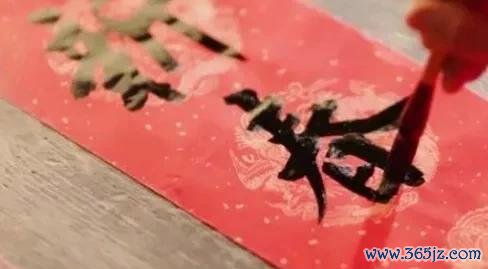 新春
www.365jz.com